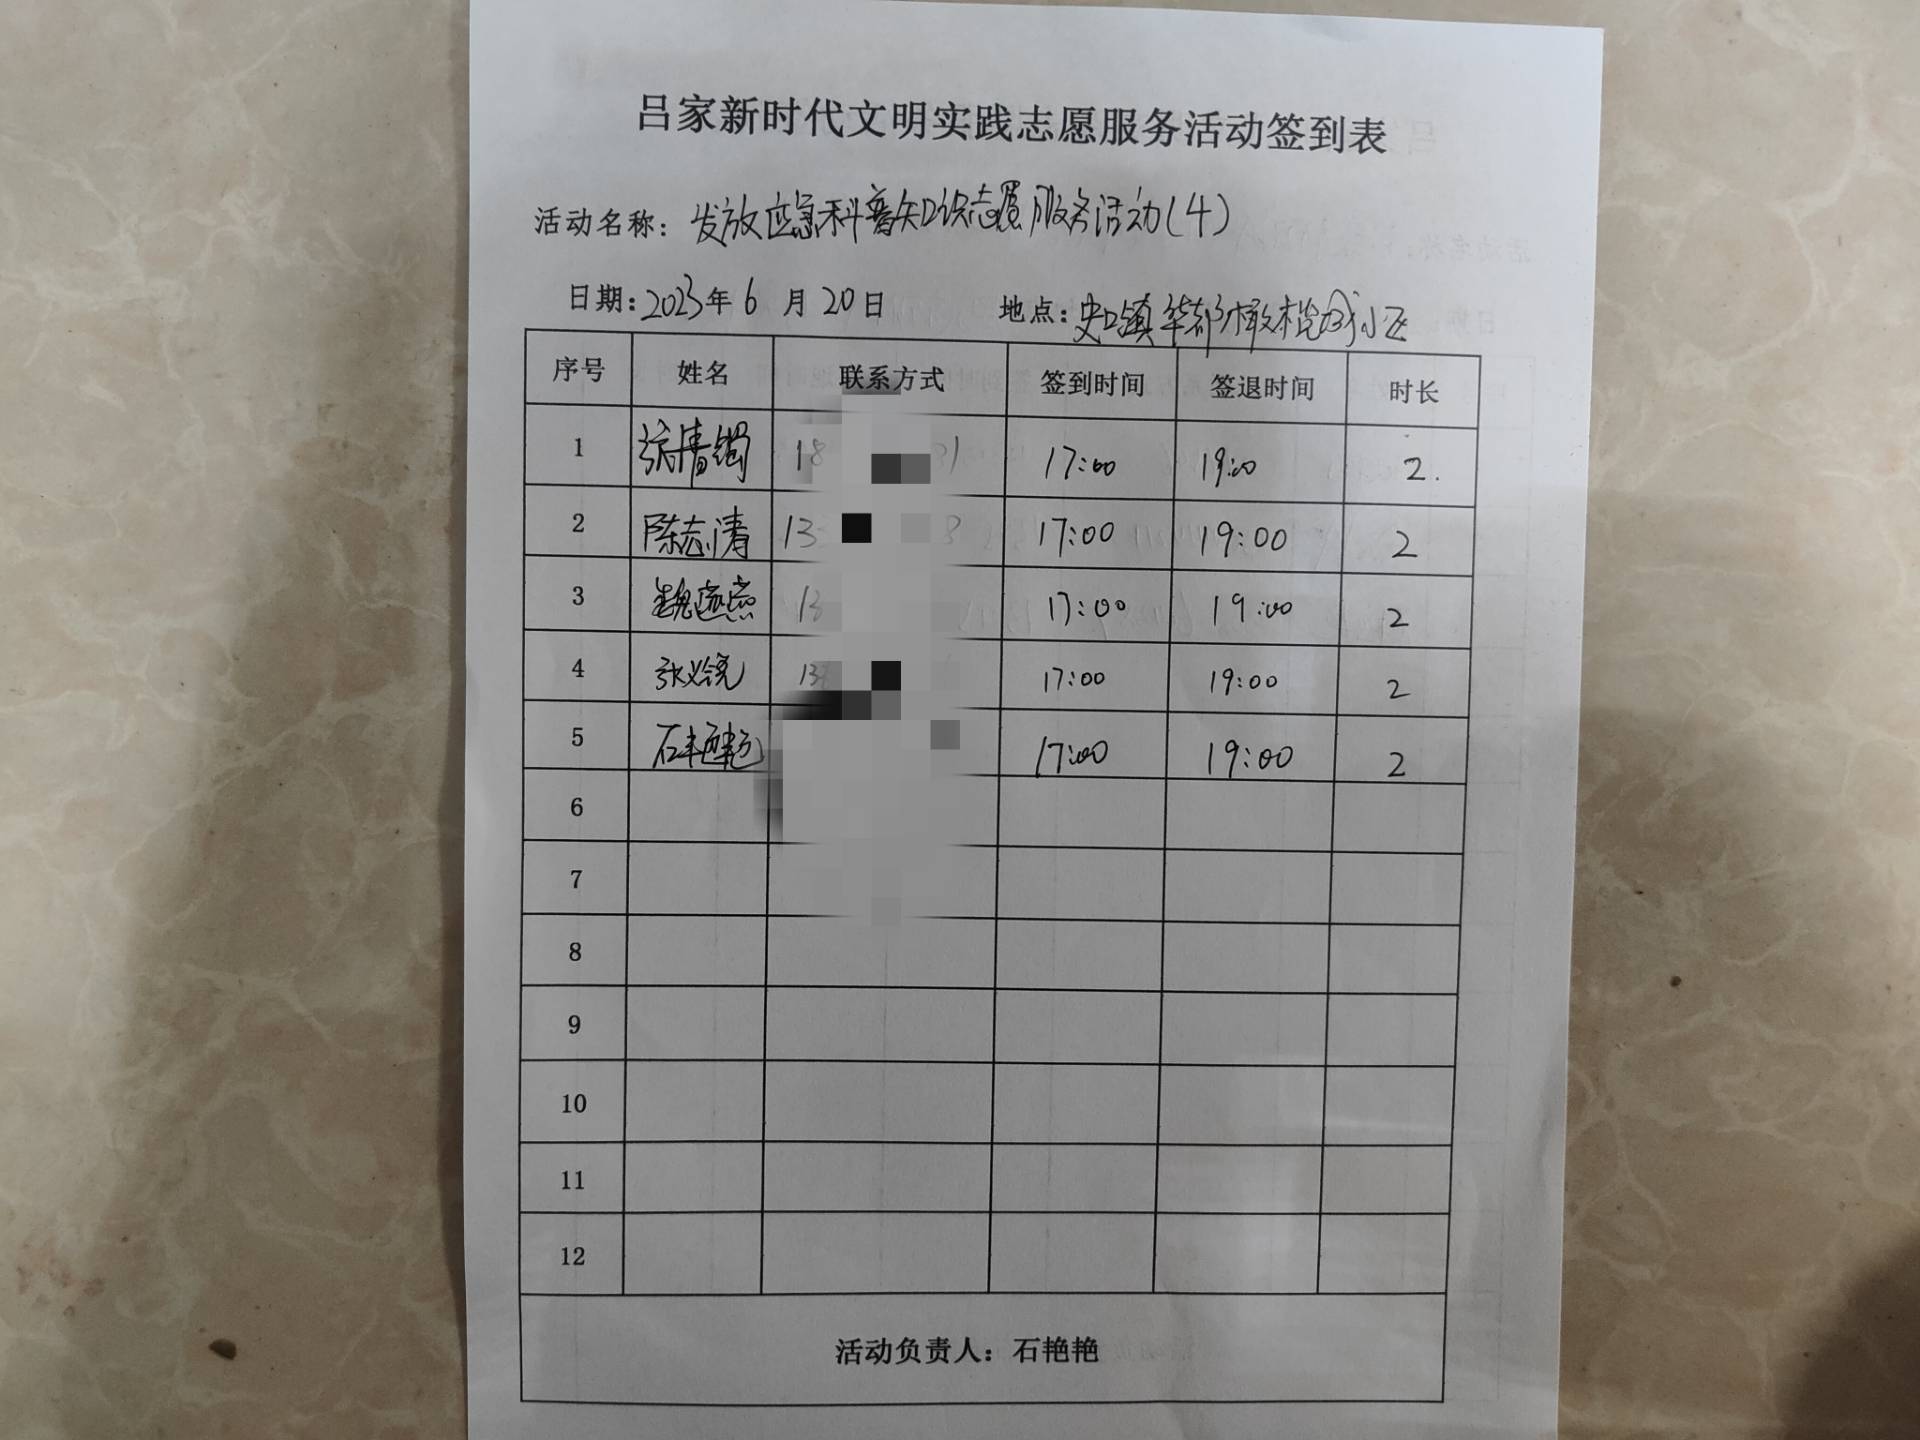 吕家新时代文明实践志愿服务活动签到表
活动名称：发放应急科普知识志愿服务活动(4)
日期：2023年6月20日 地点：史口镇华都橄榄城小区
序号 姓名 联系方式 签到时间 签退时间 时长
1 18 17:00 19:00 2.
2 陈志清 13 8 17:00 19:00 2
3 13 17:00 19:00 2
4 13 17:00 19:00 2
5 石艳艳 17:00 19:00 2
6
7
8
9
10
11
12
活动负责人：石艳艳